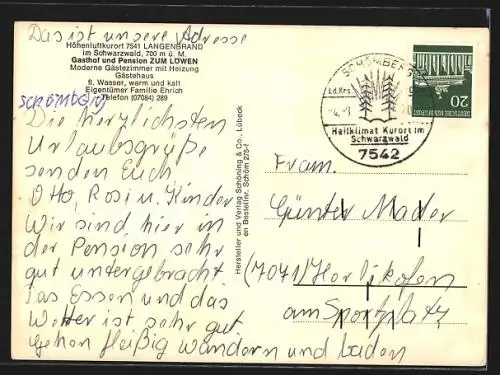 Das ist unsere Adresse
Höhenluftkurort 7541 LANGENBRAND
im Schwarzwald, 700 m ü. M.
Gasthof und Pension ZUM LÖWEN
Moderne Gästezimmer mit Heizung
Gästehaus
fl. Wasser, warm und kalt
Eigentümer Familie Ehrich
Telefon (07084) 289
SCHÖMBERG
Die herzlichsten
Urlaubsgrüße
senden Euch
Otto, Rosi u. Kinder
Wir sind hier in
der Pension sehr
gut untergebracht
Das Essen und das
Wetter ist sehr gut
gehen fleißig wandern und baden
Hersteller und Verlag Schöning & Co., Lübeck
en Bestellnr. Schöm 275-f
SCHÖMBERG
Ld.Krs.
Heilklimat Kurort im
Schwarzwald
7542
DEUTSCHE BUNDESPOST
20
Fram.
Günter Mader
(7071) Herlikofen
am Sportplatz